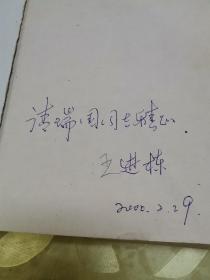 请瑞国同志雅正
王进栋
2000.2.29.